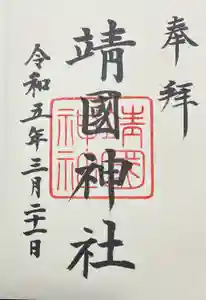 奉拝
靖國神社
靖国神社
令和五年三月二十一日